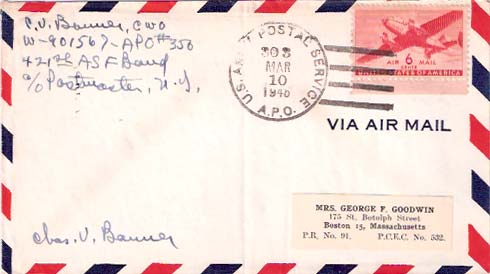 C.V. Banner, CWO
W-901567-APO#350
421st ASF Band
c/o Postmaster, N.Y.
U.S. ARMY POSTAL SERVICE
303
MAR
10
1945
A.P.O.
AIR 6 MAIL
CENTS
UNITED STATES OF AMERICA
VIA AIR MAIL
MRS. GEORGE F. GOODWIN
175 St. Botolph Street
Boston 15, Massachusetts
P.R. No. 91. P.C.E.C. No. 532.
Chas. V. Banner